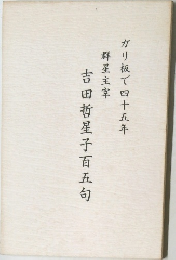 ガリ板で四十五年
群星主宰
吉田哲星子百五句